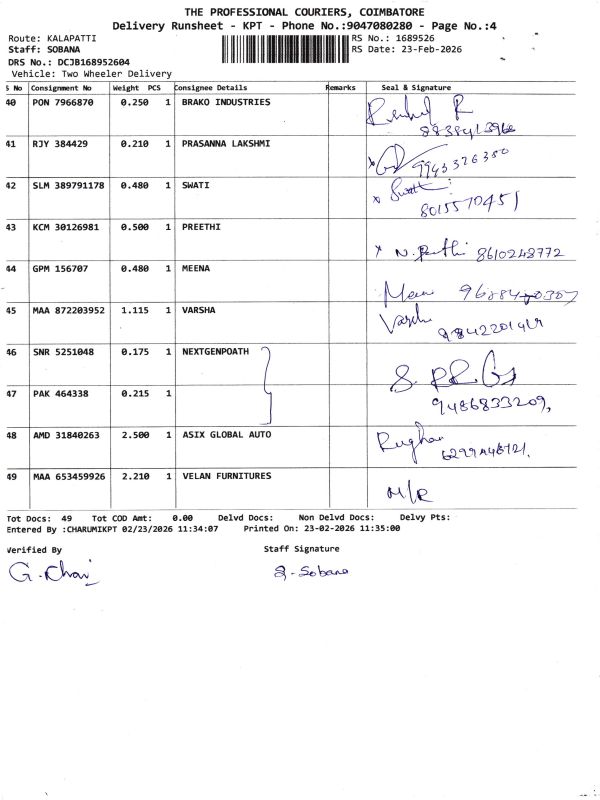 THE PROFESSIONAL COURIERS, COIMBATORE
Delivery Runsheet - KPT - Phone No.:9047080280 - Page No.:4
Route: KALAPATTI RS No.: 1689526
Staff: SOBANA RS Date: 23-Feb-2026
DRS No.: DCJB168952604
Vehicle: Two Wheeler Delivery
S No Consignment No Weight PCS Consignee Details Remarks Seal & Signature
40 PON 7966870 0.250 1 BRAKO INDUSTRIES
41 RJY 384429 0.210 1 PRASANNA LAKSHMI 9943326380
42 SLM 389791178 0.480 1 SWATI
8015570451
43 KCM 30126981 0.500 1 PREETHI
8610248772
44 GPM 156707 0.480 1 MEENA
45 MAA 872203952 1.115 1 VARSHA
46 SNR 5251048 0.175 1 NEXTGENPOATH
47 PAK 464338 0.215 1
9486833209,
48 AMD 31840263 2.500 1 ASIX GLOBAL AUTO
49 MAA 653459926 2.210 1 VELAN FURNITURES
N/R
Tot Docs: 49 Tot COD Amt: 0.00 Delvd Docs: Non Delvd Docs: Delvy Pts:
Entered By :CHARUMIKPT 02/23/2026 11:34:07 Printed On: 23-02-2026 11:35:00
Verified By Staff Signature
S-Sobana